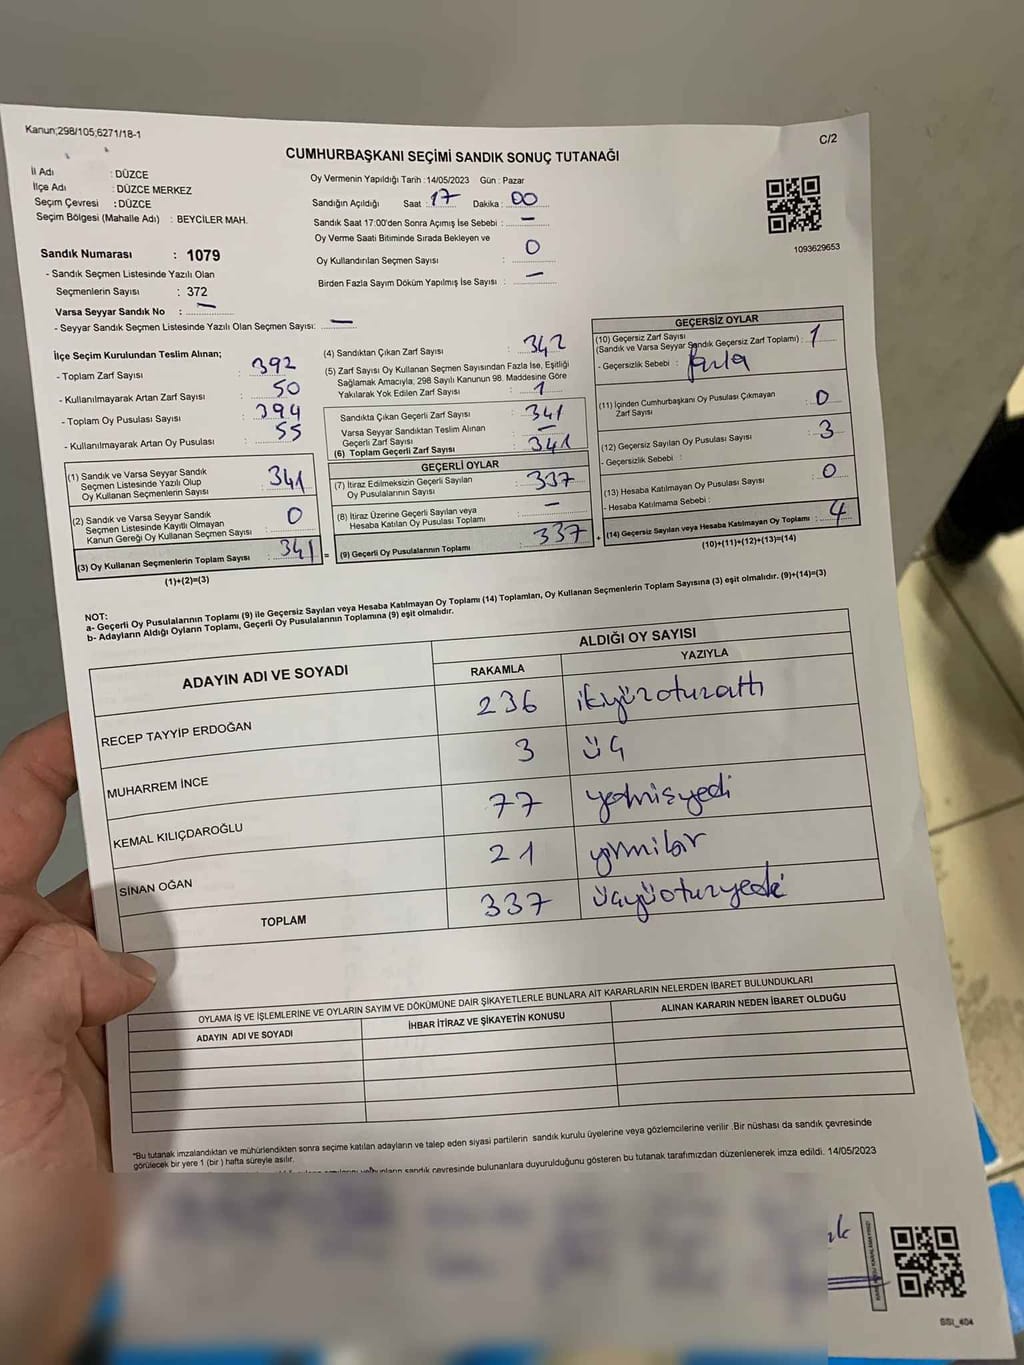 Kanun;298/105,6271/18-1
C/2
CUMHURBAŞKANI SEÇİMİ SANDIK SONUÇ TUTANAĞI
İl Adı : DÜZCE
İlçe Adı : DÜZCE MERKEZ
Seçim Çevresi : DÜZCE
Seçim Bölgesi (Mahalle Adı) : BEYCİLER MAH.
Oy Vermenin Yapıldığı Tarih : 14/05/2023 Gün : Pazar
Sandığın Açıldığı Saat : 17 Dakika : 00
Sandık Saat 17:00'den Sonra Açımış İse Sebebi : —
Oy Verme Saati Bitiminde Sırada Bekleyen ve
Oy Kullandırılan Seçmen Sayısı : 0
Birden Fazla Sayım Döküm Yapılmış İse Sayısı : —
1093629653
Sandık Numarası : 1079
- Sandık Seçmen Listesinde Yazılı Olan
Seçmenlerin Sayısı : 372
Varsa Seyyar Sandık No : —
- Seyyar Sandık Seçmen Listesinde Yazılı Olan Seçmen Sayısı: —
İlçe Seçim Kurulundan Teslim Alınan;
- Toplam Zarf Sayısı : 392
- Kullanılmayarak Artan Zarf Sayısı : 50
- Toplam Oy Pusulası Sayısı : 394
- Kullanılmayarak Artan Oy Pusulası : 55
(1) Sandık ve Varsa Seyyar Sandık
Seçmen Listesinde Yazılı Olup
Oy Kullanan Seçmenlerin Sayısı : 341
(2) Sandık ve Varsa Seyyar Sandık
Seçmen Listesinde Kayıtlı Olmayan
Kanun Gereği Oy Kullanan Seçmen Sayısı : 0
(3) Oy Kullanan Seçmenlerin Toplam Sayısı : 341 =
(1)+(2)=(3)
(4) Sandıktan Çıkan Zarf Sayısı : 342
(5) Zarf Sayısı Oy Kullanan Seçmen Sayısından Fazla İse, Eşitliği
Sağlamak Amacıyla; 298 Sayılı Kanunun 98. Maddesine Göre
Yakılarak Yok Edilen Zarf Sayısı : 1
Sandıkta Çıkan Geçerli Zarf Sayısı : 341
Varsa Seyyar Sandıktan Teslim Alınan
Geçerli Zarf Sayısı : —
(6) Toplam Geçerli Zarf Sayısı : 341
GEÇERLİ OYLAR
(7) İtiraz Edilmeksizin Geçerli Sayılan
Oy Pusulalarının Sayısı : 337
(8) İtiraz Üzerine Geçerli Sayılan veya
Hesaba Katılan Oy Pusulası Toplamı : —
(9) Geçerli Oy Pusulalarının Toplamı : 337 +
GEÇERSİZ OYLAR
(10) Geçersiz Zarf Sayısı
(Sandık ve Varsa Seyyar Sandık Geçersiz Zarf Toplamı) : 1
- Geçersizlik Sebebi : fazla
(11) İçinden Cumhurbaşkanı Oy Pusulası Çıkmayan
Zarf Sayısı : 0
(12) Geçersiz Sayılan Oy Pusulası Sayısı : 3
- Geçersizlik Sebebi :
(13) Hesaba Katılmayan Oy Pusulası Sayısı : 0
- Hesaba Katılmama Sebebi :
(14) Geçersiz Sayılan veya Hesaba Katılmayan Oy Toplamı : 4
(10)+(11)+(12)+(13)=(14)
NOT:
a- Geçerli Oy Pusulalarının Toplamı (9) ile Geçersiz Sayılan veya Hesaba Katılmayan Oy Toplamı (14) Toplamları, Oy Kullanan Seçmenlerin Toplam Sayısına (3) eşit olmalıdır. (9)+(14)=(3)
b- Adayların Aldığı Oyların Toplamı, Geçerli Oy Pusulalarının Toplamına (9) eşit olmalıdır.
ADAYIN ADI VE SOYADI
ALDIĞI OY SAYISI
RAKAMLA YAZIYLA
RECEP TAYYİP ERDOĞAN 236 ikiyüzotuzaltı
MUHARREM İNCE 3 üç
KEMAL KILIÇDAROĞLU 77 yetmişyedi
SİNAN OĞAN 21 yirmibir
TOPLAM 337 üçyüzotuzyedi
OYLAMA İŞ VE İŞLEMLERİNE VE OYLARIN SAYIM VE DÖKÜMÜNE DAİR ŞİKAYETLERLE BUNLARA AİT KARARLARIN NELERDEN İBARET BULUNDUKLARI
ADAYIN ADI VE SOYADI İHBAR İTİRAZ VE ŞİKAYETİN KONUSU ALINAN KARARIN NEDEN İBARET OLDUĞU
"Bu tutanak imzalandıktan ve mühürlendikten sonra seçime katılan adayların ve talep eden siyasi partilerin sandık kurulu üyelerine veya gözlemcilerine verilir .Bir nüshası da sandık çevresinde
görülecek bir yere 1 (bir ) hafta süreyle asılır.
sandık çevresinde bulunanlara duyurulduğunu gösteren bu tutanak tarafımızdan düzenlenerek imza edildi. 14/05/2023
SSI_404